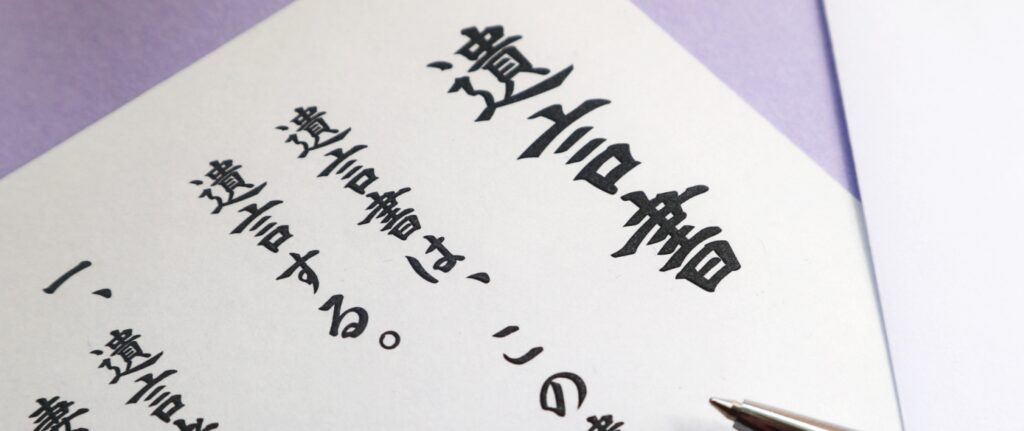 遺言書
遺言書は、この
遺言する。
一、遺言者
妻